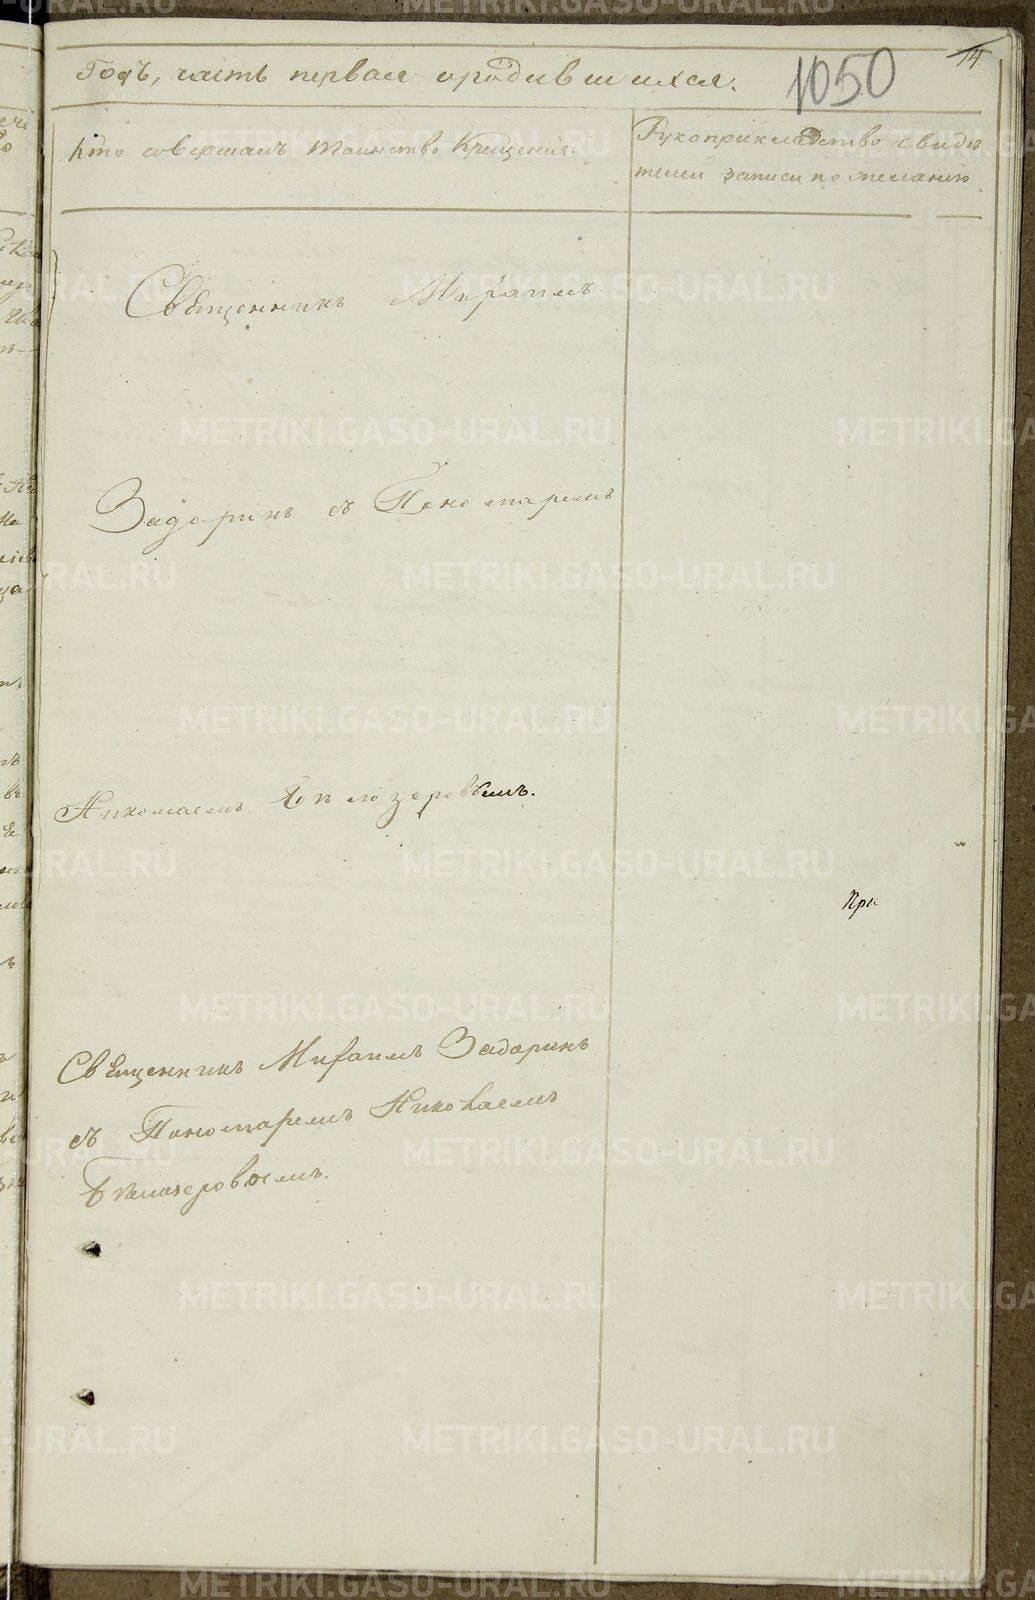 14
Годъ, часть первая о родившихся.
1050
Кто совершалъ таинство Крещенія.
Рукоприкладство свидѣ
телей записи по желанію
Священникъ Михаилъ
Задоринъ съ Пономаремъ
Николаемъ Бѣлозеровымъ.
При
Священникъ Михаилъ Задоринъ
съ Пономаремъ Николаемъ
Бѣлозеровымъ.
METRIKI.GASO-URAL.RU